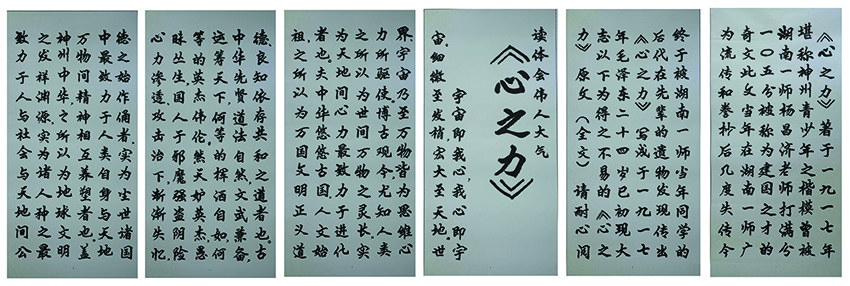 《心之力》著于一九一七年
堪称神州青少年之楷模曾被
湖南一师杨昌济老师打满分
一〇五分被称为建国之才的
奇文此文当年在湖南一师广
为流传和誊抄后几度失传今
终于被湖南一师当年同学的
后代在先辈的遗物发现传出
《心之力》写成于一九一七
年毛泽东二十四岁已初现大
志以下为得之不易的《心之
力》原文（全文）请耐心阅
读体会伟人大气
《心之力》
宇宙即我心，我心即宇
宙。细微至发梢，宏大至天地。世
界、宇宙乃至万物皆为思维心
力所驱使。博古观今，尤知人类
之所以为世间万物之灵长，实
为天地间心力最致力于进化
者也。夫中华悠悠古国，人文始
祖，之所以为万国文明正义道
德、良知依存共和之道者也。古
中华先贤道法自然，文武兼备，
运筹天下，何等的挥洒自如，何
等的英杰伟伦。然天妒英杰，愚
昧丛生，国人于邪魔强盗阴险
心力渗透、攻击治下，渐渐失忆，
德之始作俑者，实为尘世诸国
中最致力于人类自身与天地
万物间精神相互养塑者也。盖
神州中华之所以为地球文明
之发祥渊源，实为诸人种之最
致力于人与社会与天地间公